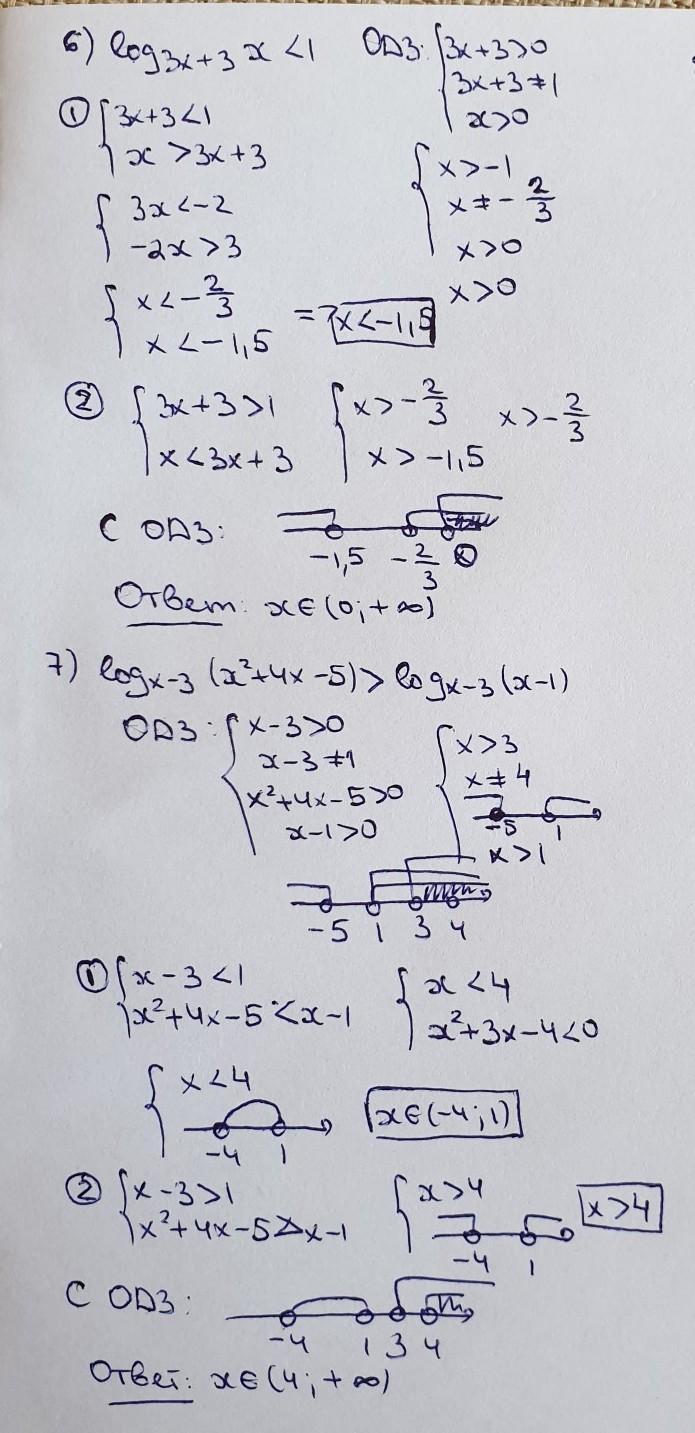 6) log₃ₓ₊₃ x < 1   ОДЗ: { 3x+3>0
3x+3≠1
x>0
① { 3x+3<1
x > 3x+3
{ x>-1
x≠-2/3
x>0
x>0
{ 3x<-2
-2x>3
{ x<-2/3
x<-1,5
=> x<-1,5
② { 3x+3>1
x<3x+3
{ x>-2/3
x>-1,5
x>-2/3
С ОДЗ:
-1,5   -2/3   0
Ответ: x∈(0;+∞)
7) logₓ₋₃ (x²+4x-5) > logₓ₋₃ (x-1)
ОДЗ: { x-3>0
x-3≠1
x²+4x-5>0
x-1>0
{ x>3
x≠4
-5   1
x>1
-5   1   3   4
① { x-3<1
x²+4x-5<x-1
{ x<4
x²+3x-4<0
{ x<4
-4   1
x∈(-4;1)
② { x-3>1
x²+4x-5>x-1
{ x>4
-4   1
x>4
С ОДЗ:
-4   1   3   4
Ответ: x∈(4;+∞)